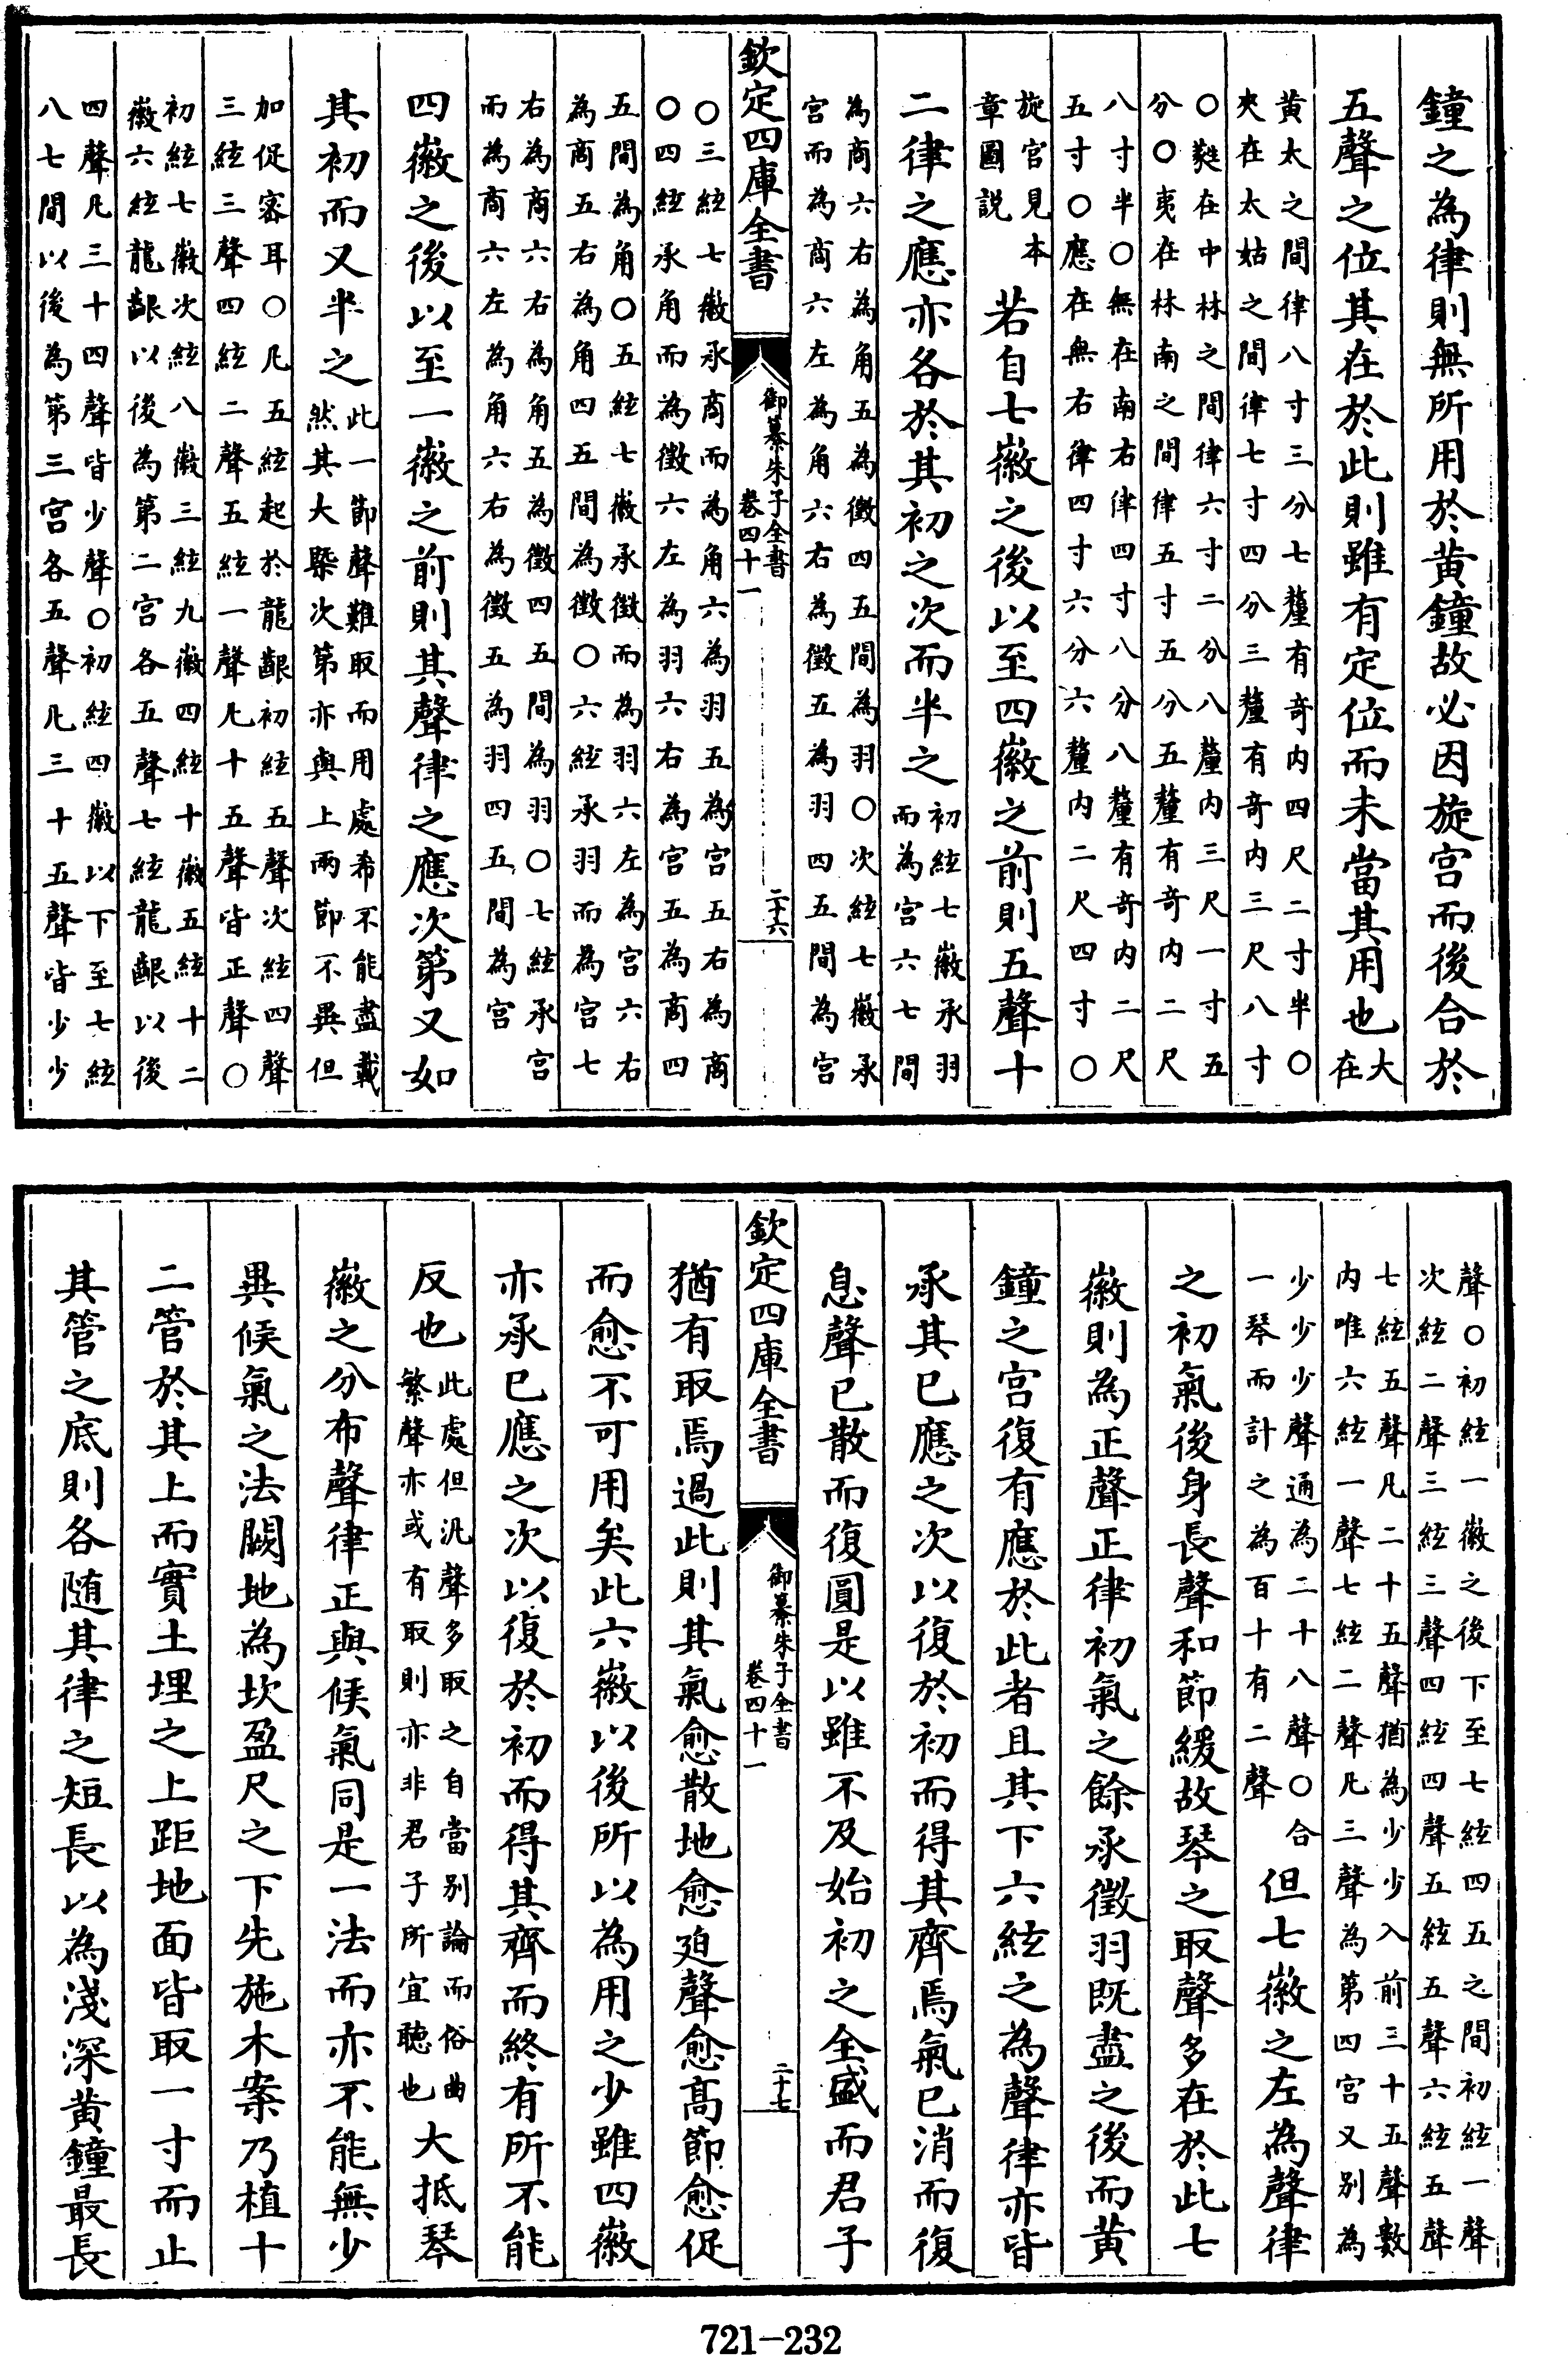 鐘之為律則無所用於黄鐘故必因旋宫而後合於
五聲之位其在於此則雖有定位而未當其用也大
在
黄太之間律八寸三分七釐有奇内四尺二寸半〇
夾在太姑之間律七寸四分三釐有奇内三尺八寸
〇蕤在中林之間律六寸二分八釐内三尺一寸五
分〇夷在林南之間律五寸五分五釐有奇内二尺
八寸半〇無在南右律四寸八分八釐有奇内二尺
五寸〇應在無右律四寸六分六釐内二尺四寸〇
旋宫見本
章圖説
若自七徽之後以至四徽之前則五聲十
二律之應亦各於其初之次而半之
初絃七徽承羽
而為宫六七間
為商六右為角五為徵四五間為羽〇次絃七徽承
宫而為商六左為角六右為徵五為羽四五間為宫
欽定四庫全書
御纂朱子全書
卷四十一
二十六
〇三絃七徽承商而為角六為羽五為宫五右為商
〇四絃承角而為徵六左為羽六右為宫五為商四
五間為角〇五絃七徽承徵而為羽六左為宫六右
為商五右為角四五間為徵〇六絃承羽而為宫七
右為商六右為角五為徵四五間為羽〇七絃承宫
而為商六左為角六右為徵五為羽四五間為宫
四徽之後以至一徽之前則其聲律之應次第又如
其初而又半之
此一節聲難取而用處希不能盡載
然其大槩次第亦與上兩節不異但
加促宻耳〇凡五絃起於龍齦初絃五聲次絃四聲
三絃三聲四絃二聲五絃一聲凡十五聲皆正聲〇
初絃七徽次絃八徽三絃九徽四絃十徽五絃十二
徽六絃龍齦以後為第二宫各五聲七絃龍齦以後
四聲凡三十四聲皆少聲〇初絃四徽以下至七絃
八七間以後為第三宫各五聲凡三十五聲皆少少
聲〇初絃一徽之後下至七絃四五之間初絃一聲
次絃二聲三絃三聲四絃四聲五絃五聲六絃五聲
七絃五聲凡二十五聲猶為少少入前三十五聲數
内唯六絃一聲七絃二聲凡三聲為第四宫又别為
少少少聲通為二十八聲〇合
一琴而計之為百十有二聲
但七徽之左為聲律
之初氣後身長聲和節緩故琴之取聲多在於此七
徽則為正聲正律初氣之餘承徵羽既盡之後而黄
鐘之宫復有應於此者且其下六絃之為聲律亦皆
承其已應之次以復於初而得其齊焉氣已消而復
息聲已散而復圓是以雖不及始初之全盛而君子
欽定四庫全書
御纂朱子全書
卷四十一
二十七
猶有取焉過此則其氣愈散地愈廹聲愈髙節愈促
而愈不可用矣此六徽以後所以為用之少雖四徽
亦承已應之次以復於初而得其齊而終有所不能
反也
此處但汎聲多取之自當别論而俗曲
繁聲亦或有取則亦非君子所宜聽也
大抵琴
徽之分布聲律正與候氣同是一法而亦不能無少
異候氣之法闕地為坎盈尺之下先施木案乃植十
二管於其上而實土埋之上距地面皆取一寸而止
其管之底則各随其律之短長以為淺深黄鐘最長
721-232